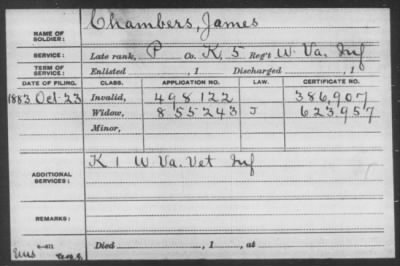 NAME OF SOLDIER: Chambers, James
SERVICE: Late rank, P Co. K, 5 Reg't W. Va. Inf
TERM OF SERVICE: Enlisted , 1 Discharged , 1
DATE OF FILING. CLASS. APPLICATION NO. LAW. CERTIFICATE NO.
1883 Oct-23 Invalid, 498122 386,907
Widow, 855243 J 623957
Minor,
ADDITIONAL SERVICES: K 1 W Va. Vet Inf
REMARKS:
Died , 1 , at